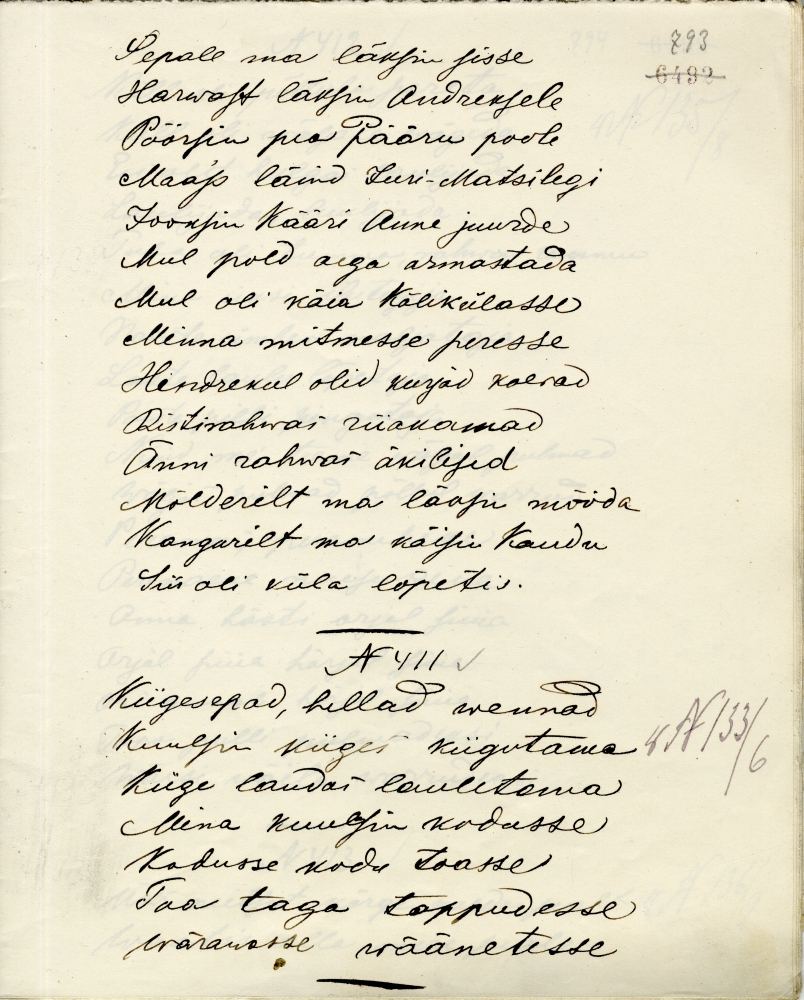 793
6492
Sepale ma läksin sisse
Harwast läksin Andreksele
Pöörsin pea Pääru poole
Maajs läind Juri-Matsilegi
Jooksin Kääri Anne juurde
Mul pold aega armastada
Mul oli käia Kõlikülasse
Minna mitmesse peresse
Hindrekul olid kurjad koerad
Ristirahwas riiakamad
Änni rahwas äkilised
Mölderilt ma läksin mööda
Kangurilt ma käisin Kaudu
Siis oli küla lõpetis.
N 411
Kiigesepad, hellad wennad
Kuulsin kiiges kiigutama
Kiige laudas lauletama
Mina kuulsin kodusse
Kodusse kodu toasse
Toa taga toppudesse
Wärawasse wäänetisse
N 133/6